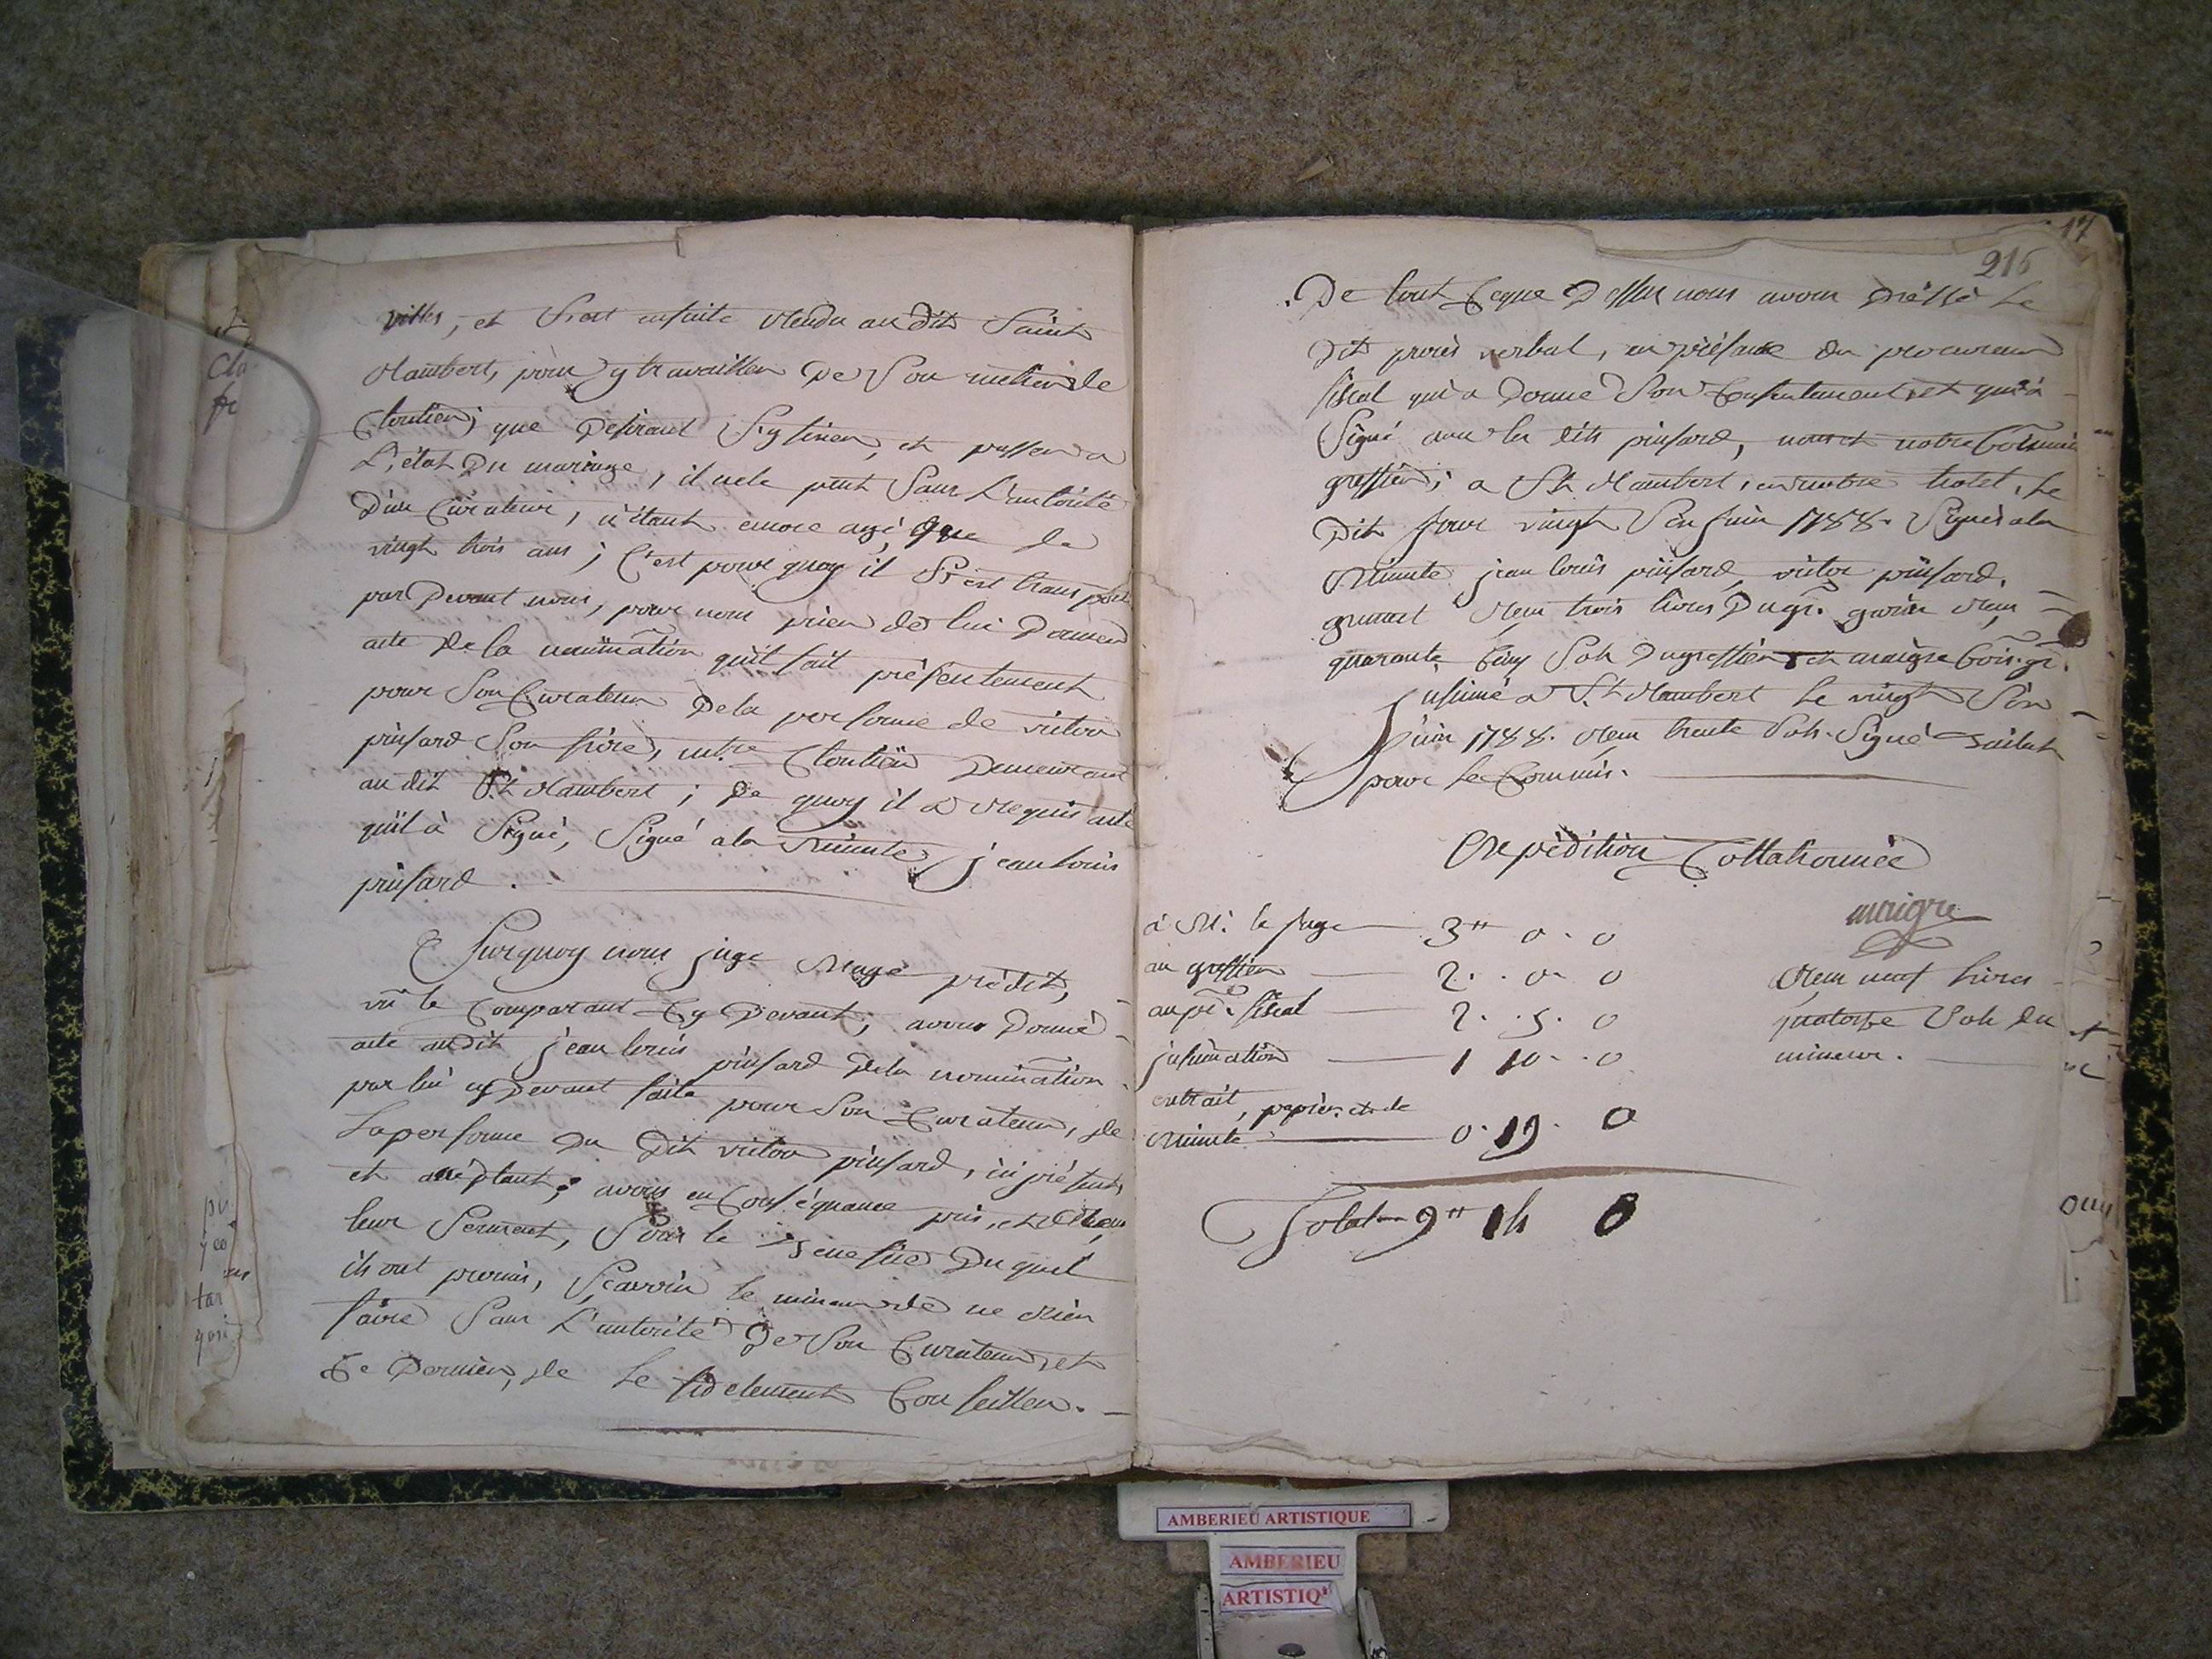 villes, et s'est ensuite rendu au dit Saint
Rambert, pour y travailler de son métier de
cloutier; que desirant s'y fixer, et passer a
L'état du mariage, il ne le peut sans L'autorité
d'un curateur, n'étant encore agé que de
vingt trois ans; c'est pour quoy il s'est transporté
par devant nous, pour nous prier de lui donner
acte de la nomination qu'il fait présentement
pour son curateur de la personne de victor
pinsard son frère, mtre cloutier demeurant
au dit St Rambert; de quoy il a requis acte
qu'il à signé, signé a la minute jean louis
pinsard.
Surquoy nous juge mage prédit,
vû le comparant cy devant, avons donné
acte audit jean louis pinsard de la nomination
par lui cy devant faite pour son curateur, de
la personne du dit victor pinsard, ici présent,
et acceptant; avons en conséquence pris, et reçu
leur serment, sous le benefice duquel
ils ont promis, sçavoir le mineur de ne rien
faire sans L'autorité de son curateur, et
ce dernier, de le fidelement conseiller.
17
216
De tout ceque dessus nous avons dréssé le
dit procès verbal, en présence du procureur
fiscal qui a donné son consentement, et qui à
signé avec les dits pinsard, nous et notre commis
greffier; a St Rambert, en notre hotel, le
dit jour vingt six juin 1788. Signés a la
minute jean louis pinsard, victor pinsard,
reçu trois livres
reçu
quarante cinq sols du greffier et maigre com. gr.
insinué a St Rambert le vingt six
juin 1788. reçu trente sols. Signé
pour le commis.
Expédition Collationnée
maigre
à M. le juge 3tt 0. 0
au greffier 2. 0. 0
au pr. fiscal 2. 5. 0
insinuation 1 10. 0
extrait, papier, et de
minute 0. 19. 0
Total 9tt 14 0
reçu neuf livres
quatorze sols du
mineur.
AMBERIEU ARTISTIQUE
AMBERIEU
ARTISTIQ